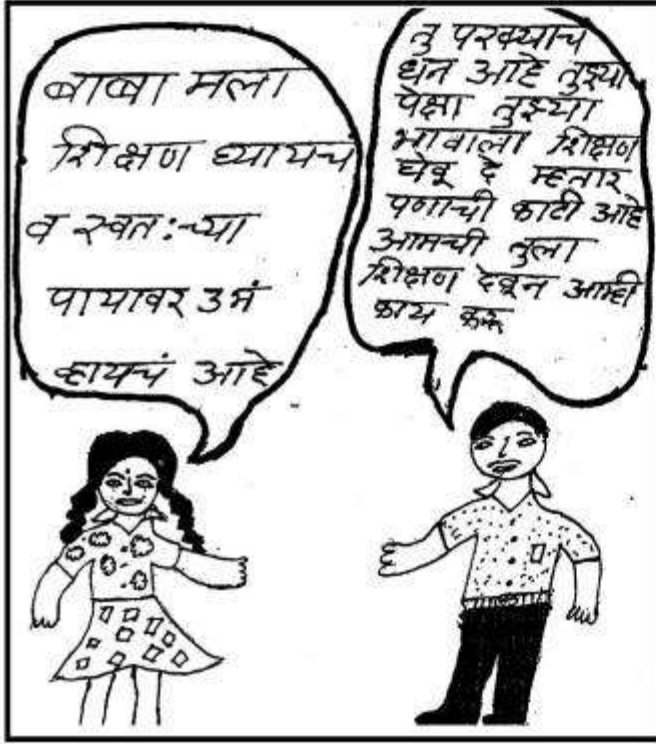 बाबा मला
शिक्षण घ्यायच
व स्वतः च्या
पायावर उभं
व्हायचं आहे
तु परक्याच
धन आहे तुझ्या
पेक्षा तुझ्या
भावाला शिक्षण
घेवू दे म्हतार
पणाची काटी आहे
आमची तुला
शिक्षण देवून आम्ही
काय करू